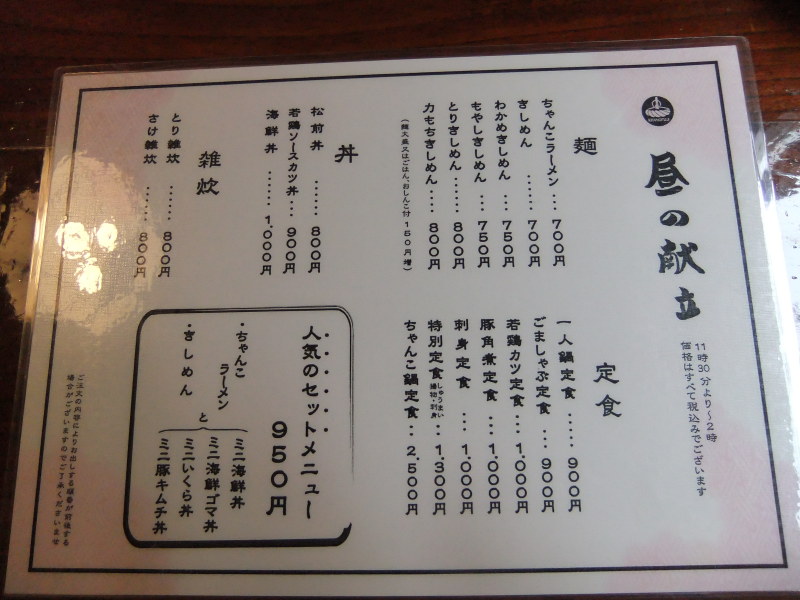 昼の献立
11時30分より~2時
価格はすべて税込みでございます
麺
ちゃんこラーメン … 700円
きしめん …… 700円
わかめきしめん … 750円
もやしきしめん … 750円
とりきしめん …… 800円
力もちきしめん … 800円
(麺大盛又はごはん、おしんこ付 150円増)
丼
松前丼 …… 800円
若鶏ソースカツ丼 … 900円
海鮮丼 …… 1.000円
雑炊
とり雑炊 …… 800円
さけ雑炊 …… 800円
定食
一人鍋定食 …… 900円
ごましゃぶ定食 … 900円
若鶏カツ定食 … 1.000円
豚角煮定食 … 1.000円
刺身定食 … 1.000円
特別定食 しゅうまい 豚角・刺身 … 1.300円
ちゃんこ鍋定食 … 2.500円
人気のセットメニュー
950円
・ちゃんこラーメン
・きしめん
と
ミニ海鮮丼
ミニ海鮮ゴマ丼
ミニいくら丼
ミニ豚キムチ丼
ご注文の内容によりお出しする順番が前後する
場合がございますのでご了承くださいませ